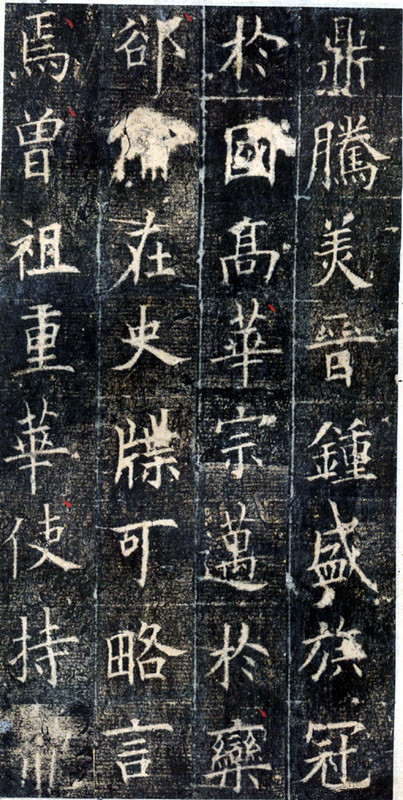 鼎騰美晉鍾盛族冠
於國高華宗邁於欒
郤在史牒可略言
焉曾祖重華使持